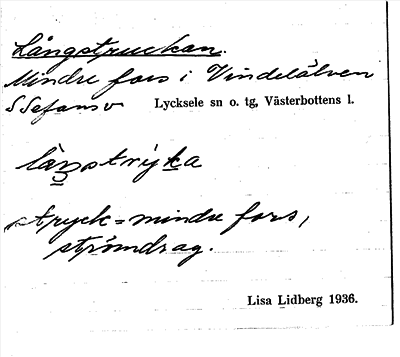 Långstruckan.
Mindre fors i Vindelälven
S Lycksele sn o. tg, Västerbottens l.
stryck = mindre fors,
strömdrag.
Lisa Lidberg 1936.